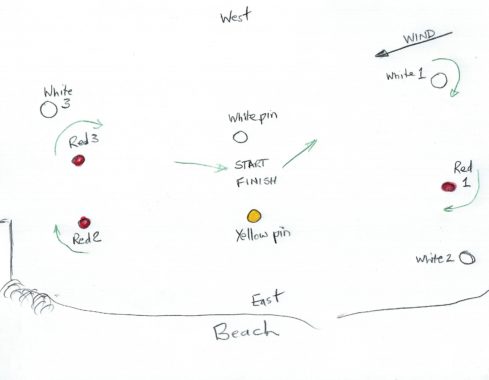 West
WIND
White 1
White
3
White pin
Red 3
START
FINISH
Red
1
Yellow pin
Red 2
White 2
East
Beach